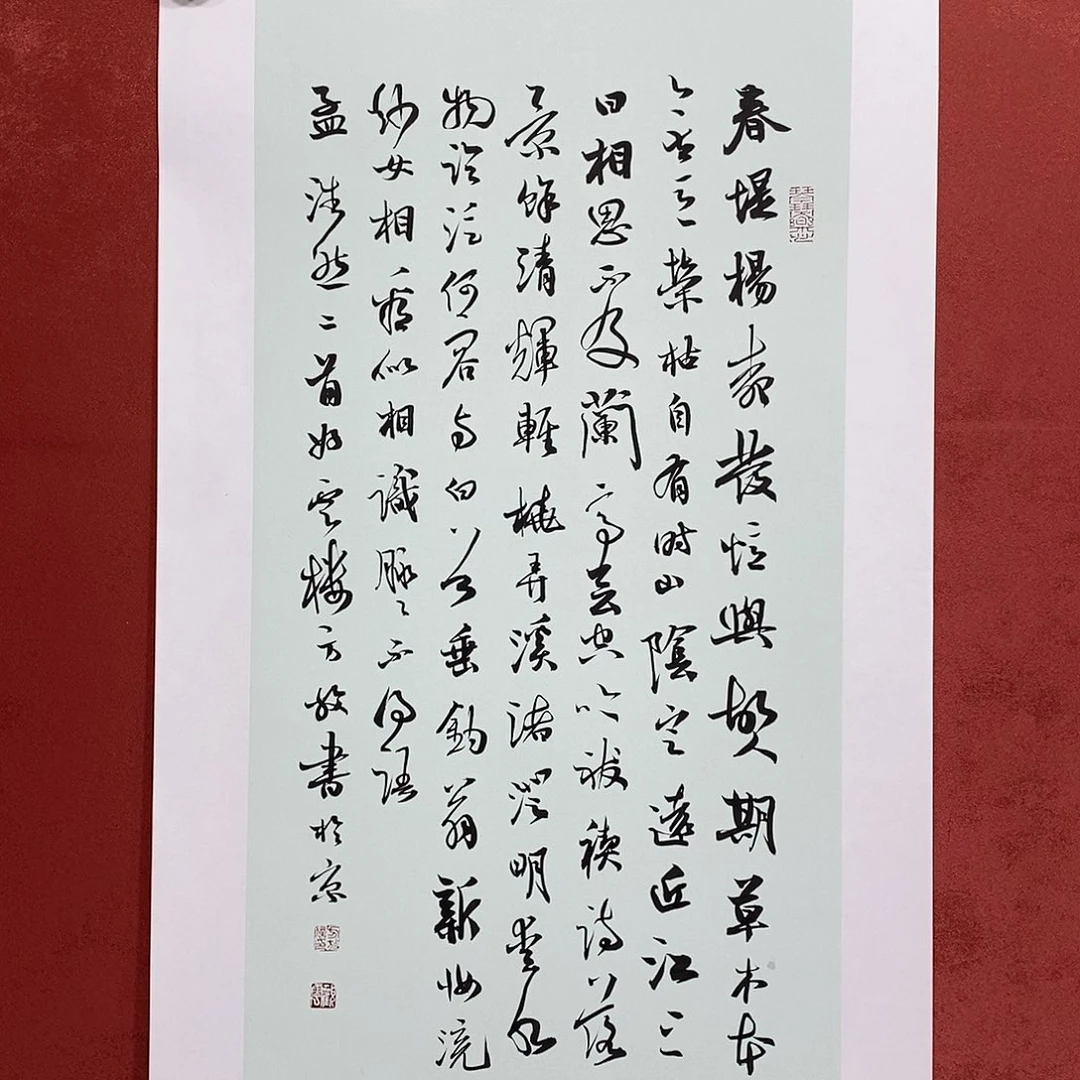 春堤楊柳發憶與故人期草木本
無意榮枯自有時山陰定遠近江上
日相思不及蘭亭會空吟祓禊詩落
景餘清輝輕橈弄溪渚澄明愛水
物臨泛何容与白首垂釣翁新妝浣
紗女相看似相識脈々不得語
孟浩然二首好雲樓方放書於京